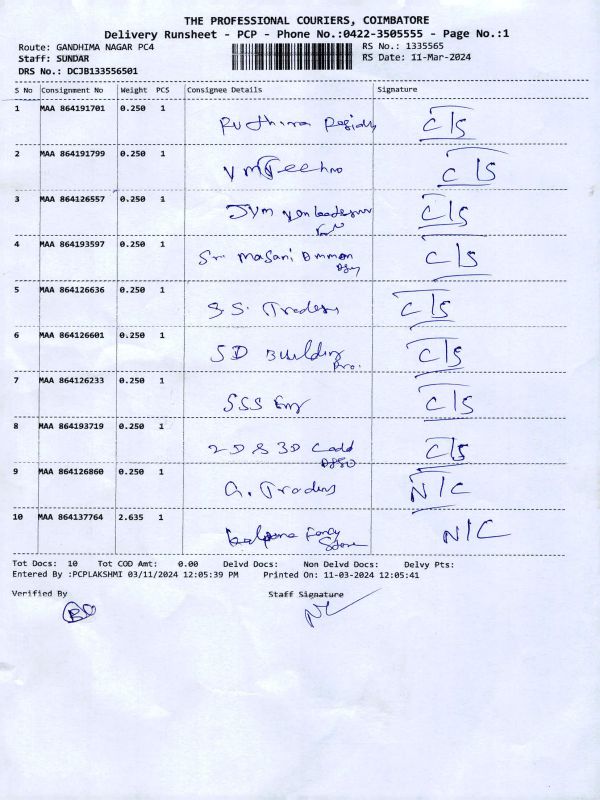 THE PROFESSIONAL COURIERS, COIMBATORE
Delivery Runsheet - PCP - Phone No.:0422-3505555 - Page No.:1
Route: GANDHIMA NAGAR PC4 RS No.: 1335565
Staff: SUNDAR RS Date: 11-Mar-2024
DRS No.: DCJB133556501
S No Consignment No Weight PCS Consignee Details Signature
1 MAA 864191701 0.250 1 C/S
2 MAA 864191799 0.250 1 C/S
3 MAA 864126557 0.250 1 C/S
4 MAA 864193597 0.250 1 Sri Masani Amman C/S
5 MAA 864126636 0.250 1 S.S. Traders C/S
6 MAA 864126601 0.250 1 SD Building Pro. C/S
7 MAA 864126233 0.250 1 SSS Eng C/S
8 MAA 864193719 0.250 1 2D & 3D Cadd C/S
9 MAA 864126860 0.250 1 G. Traders N/C
10 MAA 864137764 2.635 1 Kalpana Fancy Store N/C
Tot Docs: 10 Tot COD Amt: 0.00 Delvd Docs: Non Delvd Docs: Delvy Pts:
Entered By :PCPLAKSHMI 03/11/2024 12:05:39 PM Printed On: 11-03-2024 12:05:41
Verified By Staff Signature